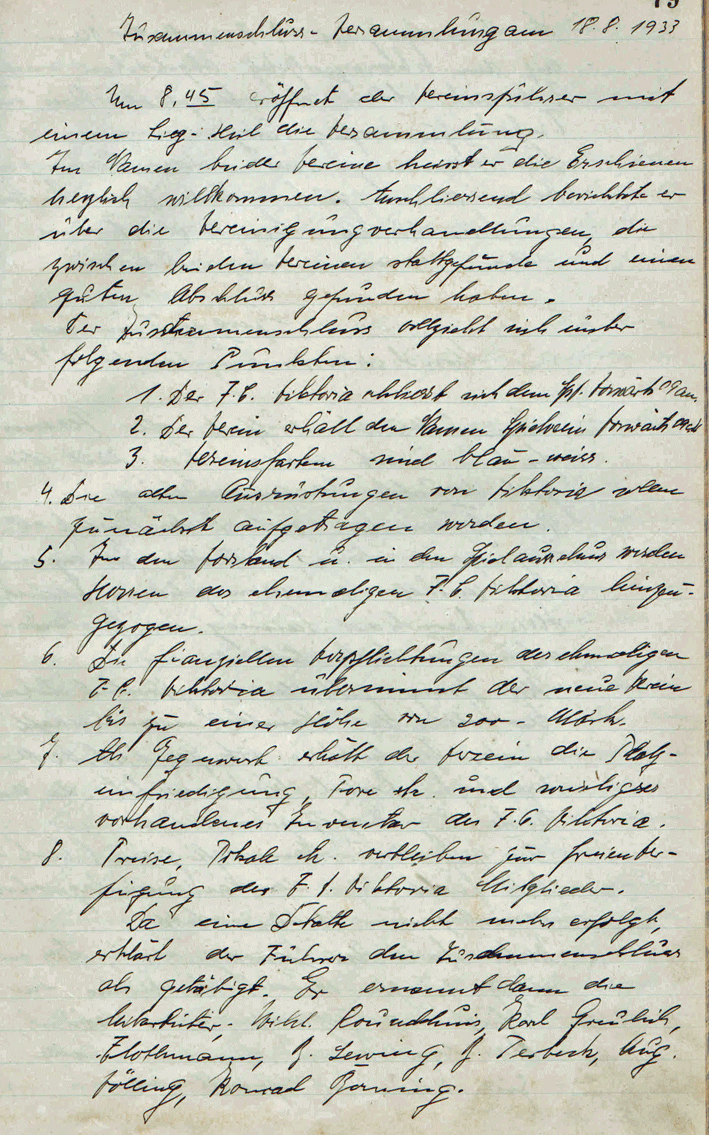 79
Zusammenschluss-Versammlung am 18.8.1933
Um 8,45 eröffnet der Vereinsführer mit
einem Sieg-Heil die Versammlung.
Im Namen beider Vereine heisst er die Erschienen
herzlich willkommen. Anschliessend berichtete er
über die Vereinigungverhandlungen, die
zwischen beiden Vereinen stattgefunde und einen
guten Abschluss gefunden haben.
Der Zusammenschluss vollzieht sich unter
folgenden Punkten:
1. Der F.C. Viktoria schliesst sich dem Spv. Vorwärts 09 an
2. Der Verein erhält den Namen Spielverein Vorwärts
3. Vereinsfarben sind blau-weiss.
4. Die alten Ausrüstungen von Viktoria sollen
zunächst aufgetragen werden.
5. In den Vorstand u. in den Spielausschuss werden
Herren des ehemaligen F.C. Viktoria hinzu-
gezogen.
6. Die finanziellen Verpflichtungen des ehmaligen
F.C. Viktoria übernimmt der neue Verein
bis zu einer Höhe von 200- Mark.
7. Als Gegenwert erhält der Verein die Platz-
einfriedigung, Tore etc. und sonstiges
vorhandenes Inventar des F.C. Viktoria.
8. Preise, Pokale etc. verbleiben zur freien Ver-
fügung der F.C. Viktoria Mitglieder.
Da eine Debatte nicht mehr erfolgt,
erklärt der Führer den Zusammenschluss
als getätigt. Er ernennt dann die
Mitarbeiter, Wilh. Karl Greulich,
Flothmann, J. Lewing, J. Terbeck, Aug.
Bölling, Konrad